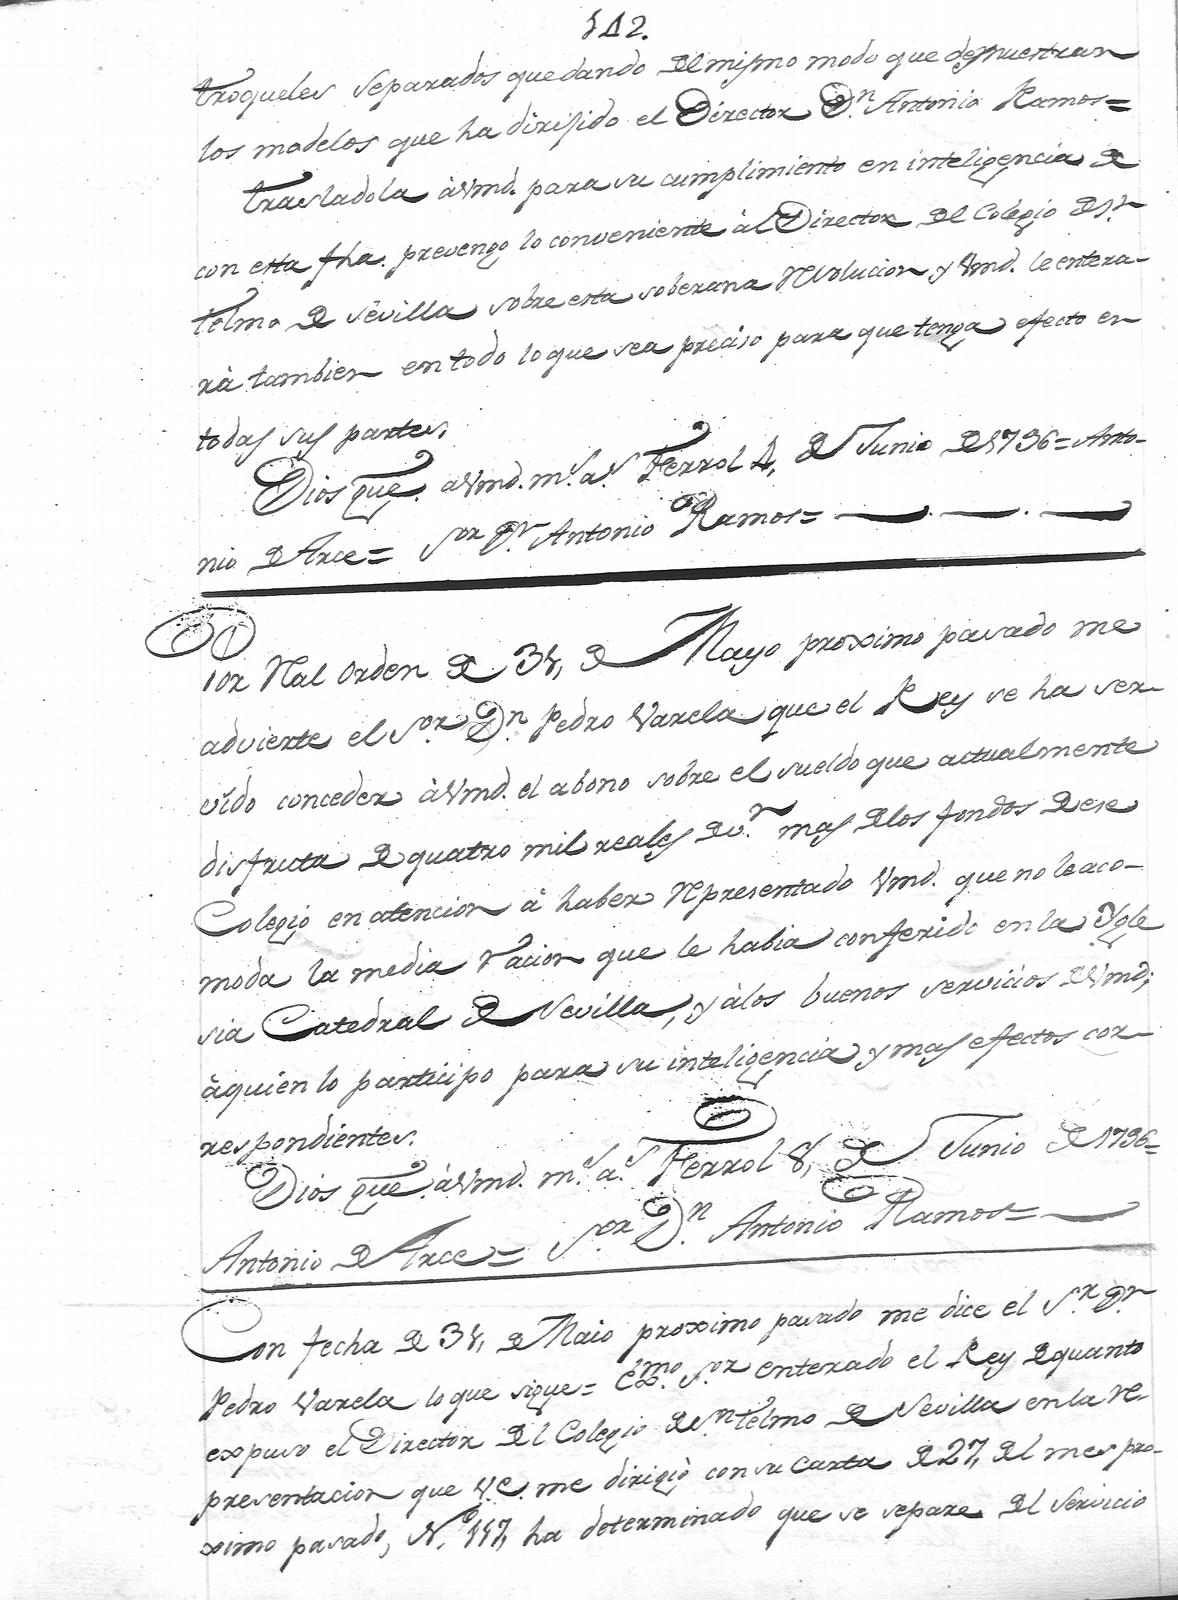 142.
troqueles separados quedando del mismo modo que demuestran
los modelos que ha dirijido el Director Dn. Antonio Ramos=
Trasladola à Vmd. para su cumplimiento en inteligencia de
con esta fha. prevengo lo conveniente àl Director del Colegio de Sn.
Telmo de Sevilla sobre esta soberana Resolucion y Vmd. le entera-
rà tambien en todo lo que sea preciso para que tenga efecto en
todas sus partes.
Dios gue. a Vmd. ms. as. Ferrol 4, de Junio de 1796= Anto-
nio de Arce= Sor. Dn. Antonio Ramos=
Por Real Orden de 31, de Mayo proximo pasado me
advierte el Sor. Dn. Pedro Varela que el Rey se ha ser-
vido conceder à Vmd. el abono sobre el sueldo que actualmente
disfruta de quatro mil reales de vn. mas de los fondos de ese
Colegio en atencion à haber Representado Vmd. que no le aco-
moda la media racion que le habia conferido en la Ygle
sia Catedral de Sevilla, y à los buenos servicios de Vmd;
à quien lo participo para su inteligencia y mas efectos cor-
respondientes.
Dios gue. à Vmd. ms. as. Ferrol 8, de Junio de 1796=
Antonio de Arce= Sor. Dn. Antonio Ramos=
Con fecha de 31, de Maio proximo pasado me dice el Sr. Dn.
Pedro Varela lo que sigue= Exmo. Sor. enterado el Rey de quanto
expuso el Director del Colegio de Sn. Telmo de Sevilla en la re-
presentacion que V.E. me dirigiò con su carta de 27, del mes pro-
ximo pasado, No. 117, ha determinado que se separe del servicio